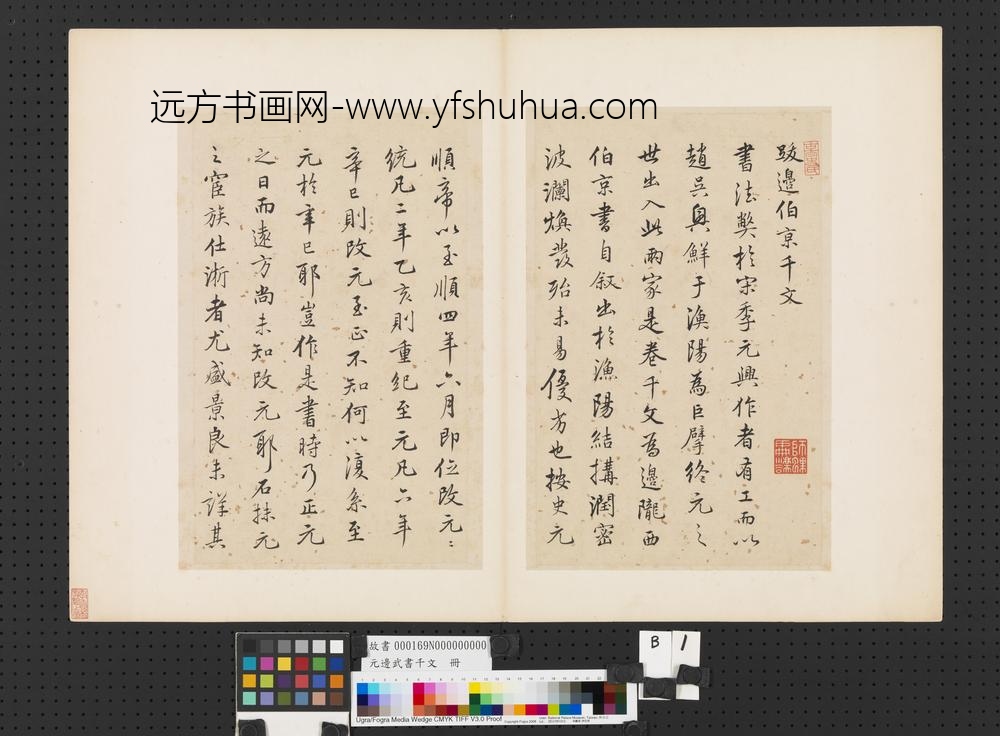 远方书画网-www.yfshuhua.com
跋邊伯京千文
書法弊於宋季元興作者有工而以
趙吳興鮮于漁陽為巨擘終元之
世出入此兩家是卷千文為邊隴西
伯京書自叙出於漁陽結搆潤密
波瀾煥發殆未易優劣也按史元
順帝以至順四年六月即位改元〻
統凡二年乙亥則重紀至元凡六年
辛巳則改元至正不知何以復系至
元於辛巳耶豈作是書時乃正元
之日而遠方尚未知改元耶石抹元
之宦族仕浙者尤盛景良未詳其
故書 000169N000000000
元邊武書千文 冊
B 1
Ugra/Fogra Media Wedge CMYK TIFF V3.0 Proof